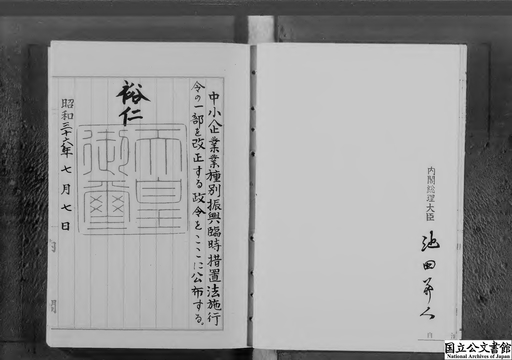 中小企業業種別振興臨時措置法施行
令の一部を改正する政令をここに公布する。
裕仁
天皇
御璽
昭和三十六年七月七日
内閣総理大臣
池田勇人
国立公文書館
National Archives of Japan